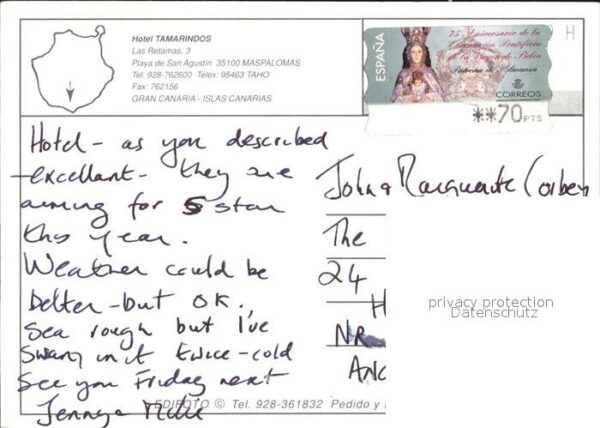 Hotel TAMARINDOS
Las Retamas, 3
Playa de San Agustin 35100 MASPALOMAS
Tel. 928-762600 Telex: 95463 TAHO
Fax: 762156
GRAN CANARIA - ISLAS CANARIAS
ESPAÑA
75 Aniversario de la
Coronación Pontificia
de la Virgen de Belén
Patrona de Almansa
CORREOS
**70 PTS
H
Hotel - as you described
excellent - they are
aiming for 5 star
this year.
Weather could be
better - but OK.
Sea rough but I've
swam in it twice - cold
See you Friday next
Jenny
John & Marguerite Corben
The
24
H
NR
privacy protection
Datenschutz
EDIFOTO © Tel. 928-361832 Pedido y